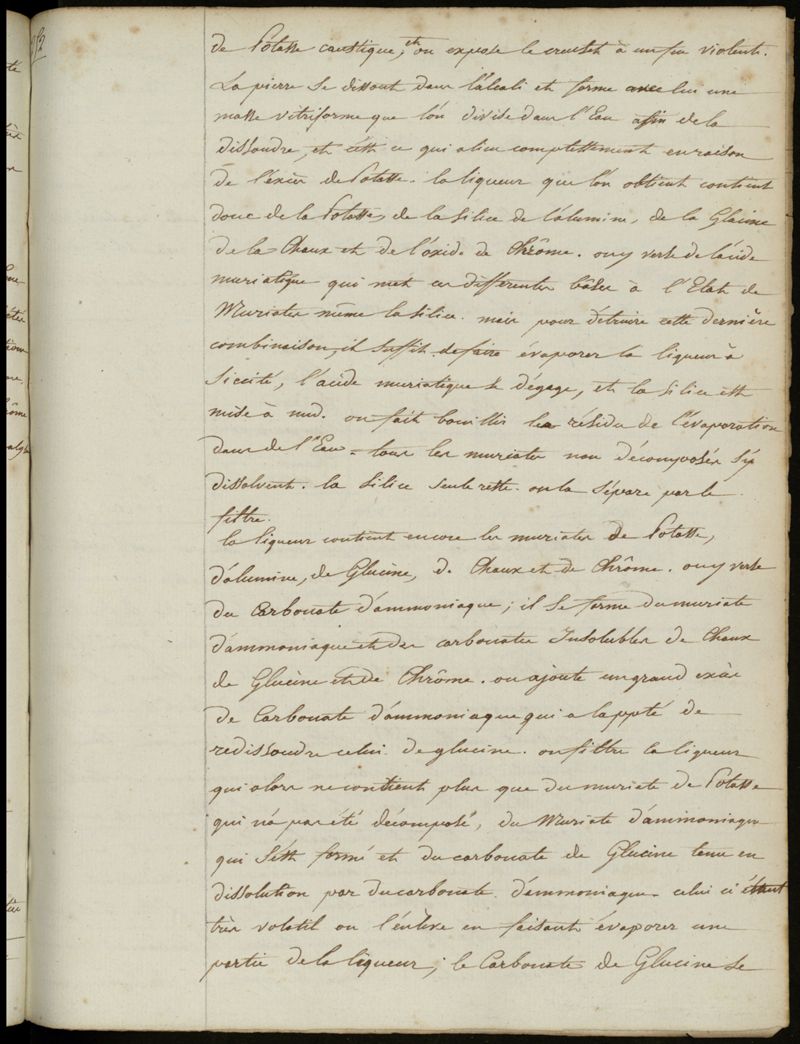 de Potasse caustique, et on expose le creuset à un feu violent.
La pierre se dissout dans l'alcali et forme avec lui une
masse vitriforme que l'on divise dans l'Eau afin de la
dissoudre, et c'est ce qui a lieu complettement en raison
de l'excès de Potasse. la liqueur que l'on obtient contient
donc de la Potasse, de la silice de l'alumine, de la Glucine
de la Chaux et de l'oxide de Chrôme. on y verse de l'acide
muriatique qui met ces différentes bâses à l'Etat de
Muriates même la silice. mais pour détruire cette dernière
combinaison, il suffit de faire évaporer la liqueur à
siccité, l'acide muriatique se dégage, et la silice est
mise à nud. on fait bouillir le résidu de l'évaporation
dans de l'Eau. tous les muriates non décomposés s'y
dissolvent. la silice seule reste. on la sépare par le
filtre.
la liqueur contient encore les muriates de Potasse,
d'alumine, de Glucine, de Chaux et de Chrôme. on y verse
du Carbonate d'ammoniaque ; il se forme du muriate
d'ammoniaque et des carbonates Insolubles de Chaux
de Glucine et de Chrôme. on ajoute un grand excès
de Carbonate d'ammoniaque qui a la ppté de
redissoudre celui de glucine. on filtre la liqueur
qui alors ne contient plus que du muriate de Potasse
qui n'a pas été décomposé, du Muriate d'ammoniaque
qui s'est formé et du carbonate de Glucine tenu en
dissolution par du carbonate d'ammoniaque. celui ci étant
très volatil on l'enlève en faisant évaporer une
partie de la liqueur ; le Carbonate de Glucine se